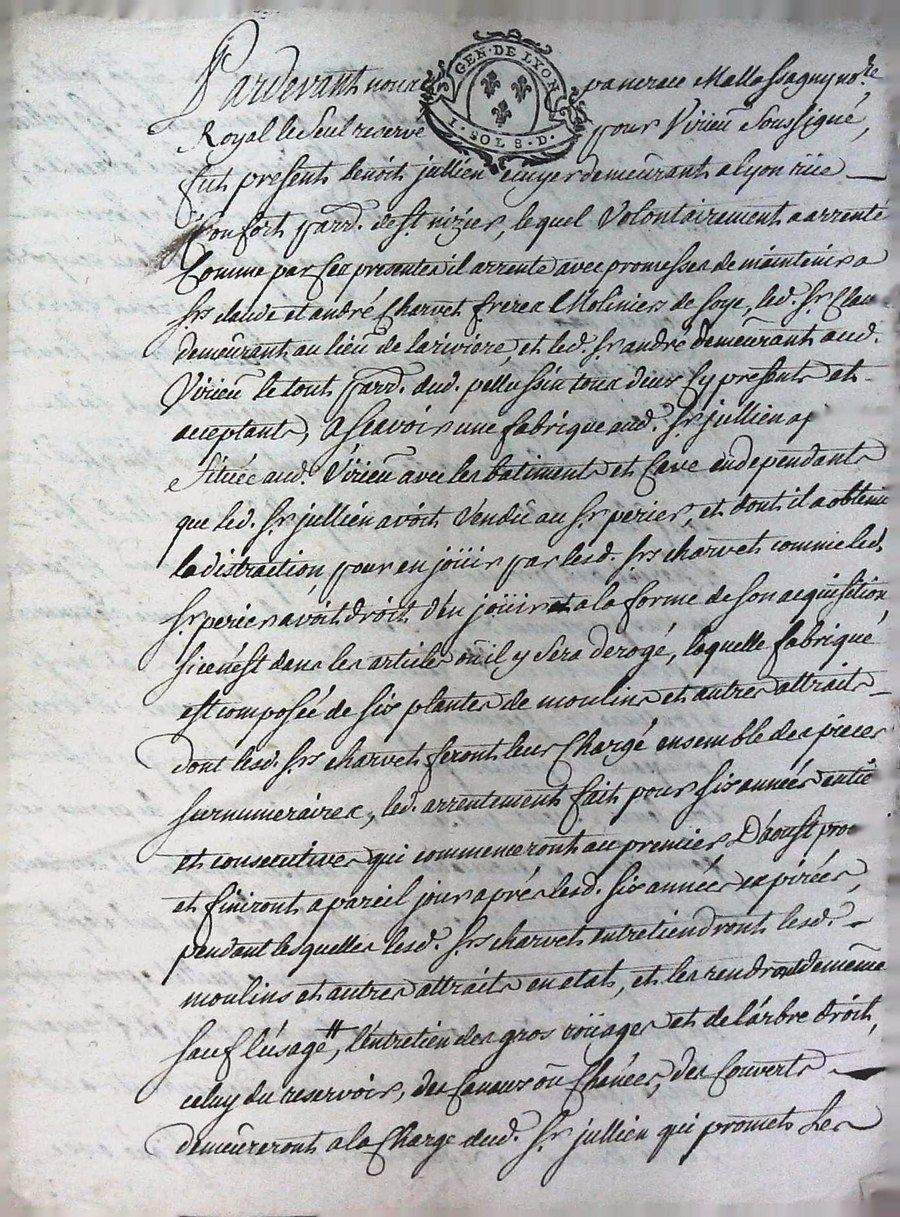 GEN · DE LYON
1 · SOL 8 · D ·
Pardevant nous pancrace Mallassagny no.re
Royal le Seul reservé pour Virieu Soussigné,
fut present benoit jullien ecuyer demeurant a lyon rüe
Confort parr. de st. nizier, lequel Volontairement a arrenté
Comme par Ces presentes il arrente avec promesses de maintenir a
Srs claude et andré Charvet freres Moliniers de Soye, led. Sr. Clau
demeurant au lieu de lariviere, et led. Sr andré demeurant aud.
Virieu le tout parr. dud. pellussin tous deux Cy presents et
acceptants, a Scavoir une fabrique aud. Sr. jullien ap
Située aud. Virieu avec les batiments et Cave en dependants
que led. Sr jullien avoit Vendu au Sr perier, et dont il a obtenu
la distraction, pour en joüir par lesd. Srs charvet comme led.
Sr. perier avoit droit d'en joüir a la forme de Son acquisition
Si ce n'est dans les articles ou il y Sera derogé, laquelle fabrique
est composée de Six plantes de moulins et autres attraits
dont lesd. Srs charvet feront leur Chargé ensemble des pieces
Surnumeraires, led. arrentement fait pour Six années entie
et consecutives qui commenceront au premier D'aoust pro
et finiront a pareil jour aprés lesd. Six années expirées,
pendant lesquelles lesd. Srs charvet entretiendront lesd.
moulins et autres attraits en etat, et les rendront de même
Sauf l'usage #, l'entretien des gros roüages et de l'arbre droit,
celuy du reservoir, des Canaux ou Chanées, des Couverts
demeureront a la Charge dud. Sr. jullien qui promet Les